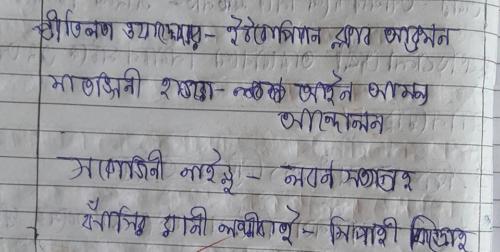 প্রীতিলতা ওয়াদ্দেদার - ইউরোপিয়ান ক্লাব আক্রমন
মাতঙ্গিনী হাজরা - আইন অমান্য
আন্দোলন
সরোজিনী নাইডু - লবন সত্যাগ্রহ
ঝাঁসির রানী লক্ষ্মীবাई - সিপাহী বিদ্রোহ